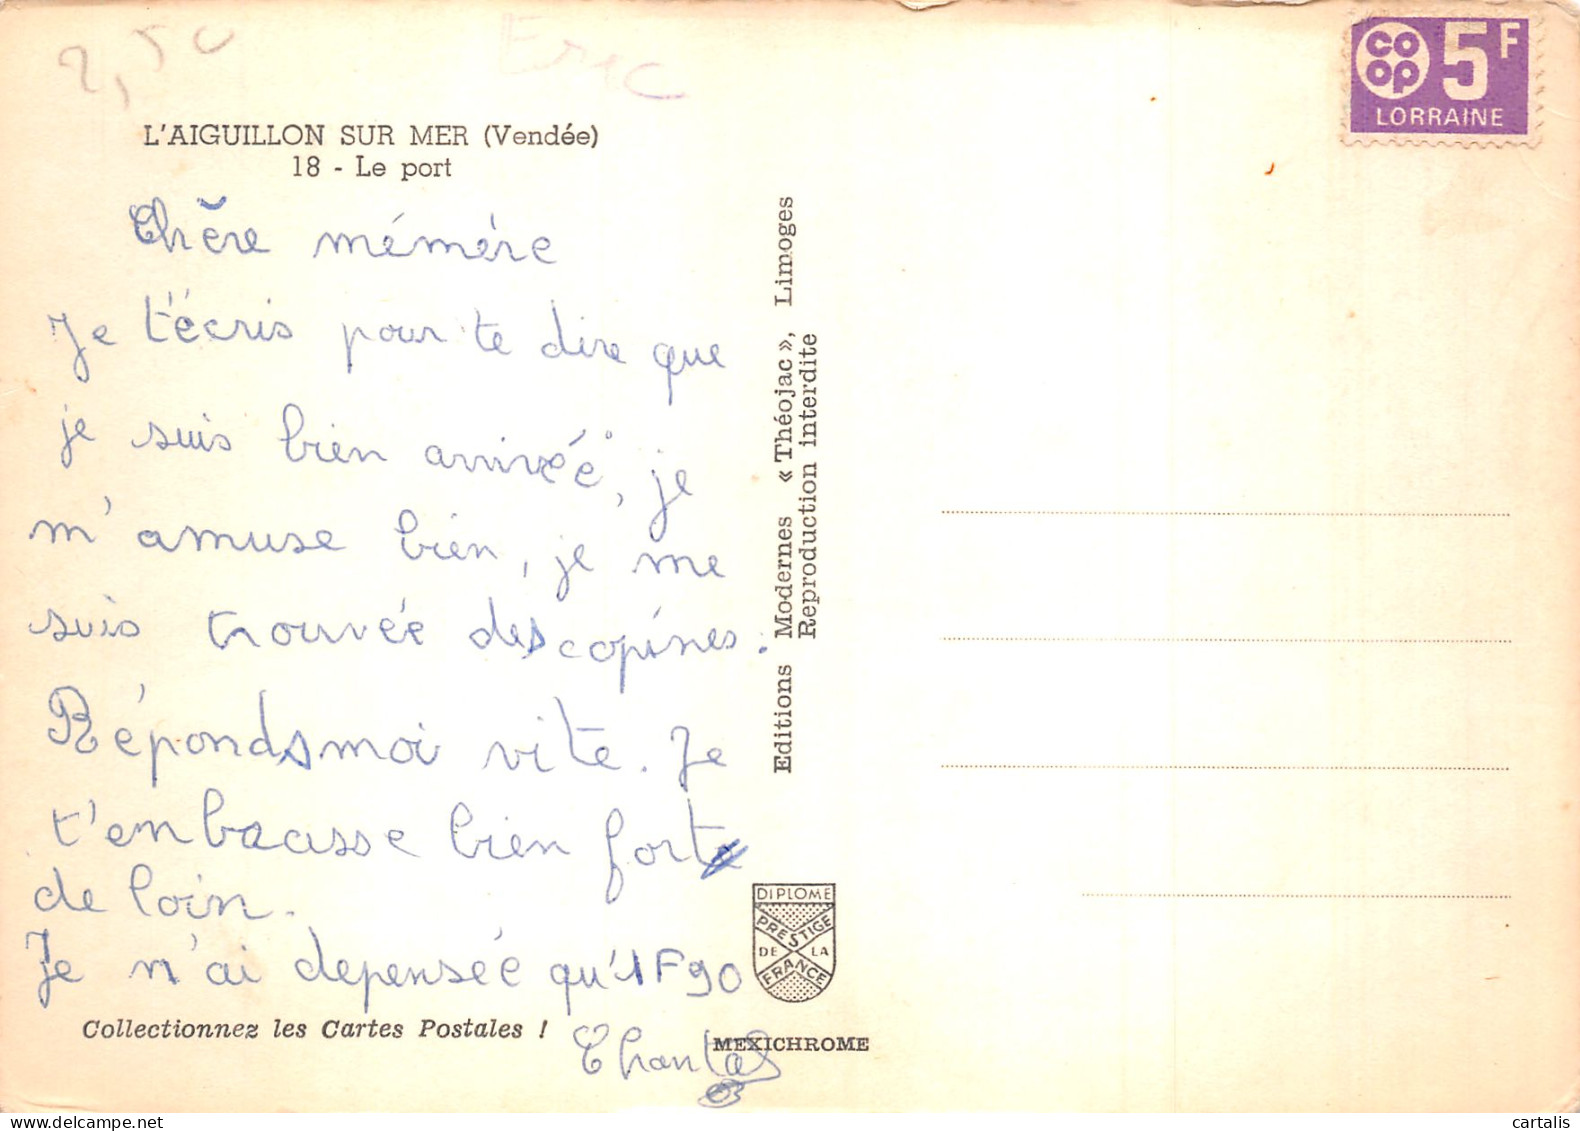 2,50
Eric
CO OP 5F
LORRAINE
L'AIGUILLON SUR MER (Vendée)
18 - Le port
Chère mémère
Je t'écris pour te dire que
je suis bien arrivéé, je
m'amuse bien, je me
suis trouvée des copines.
Réponds moi vite. Je
t'embrasse bien fort
de loin.
Je n'ai depensée qu'1F90
Chantal
Collectionnez les Cartes Postales !
Editions Modernes « Théojac », Limoges
Reproduction interdite
DIPLOME
PRESTIGE
DE LA
FRANCE
MEXICHROME
cartalis